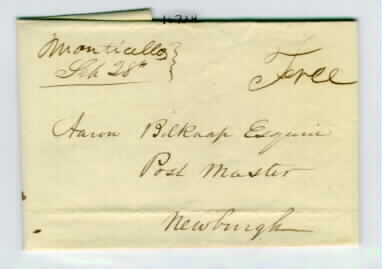 Monticello
Feb 28th
Free
Aaron Bilknap Esquire
Post Master
Newburgh